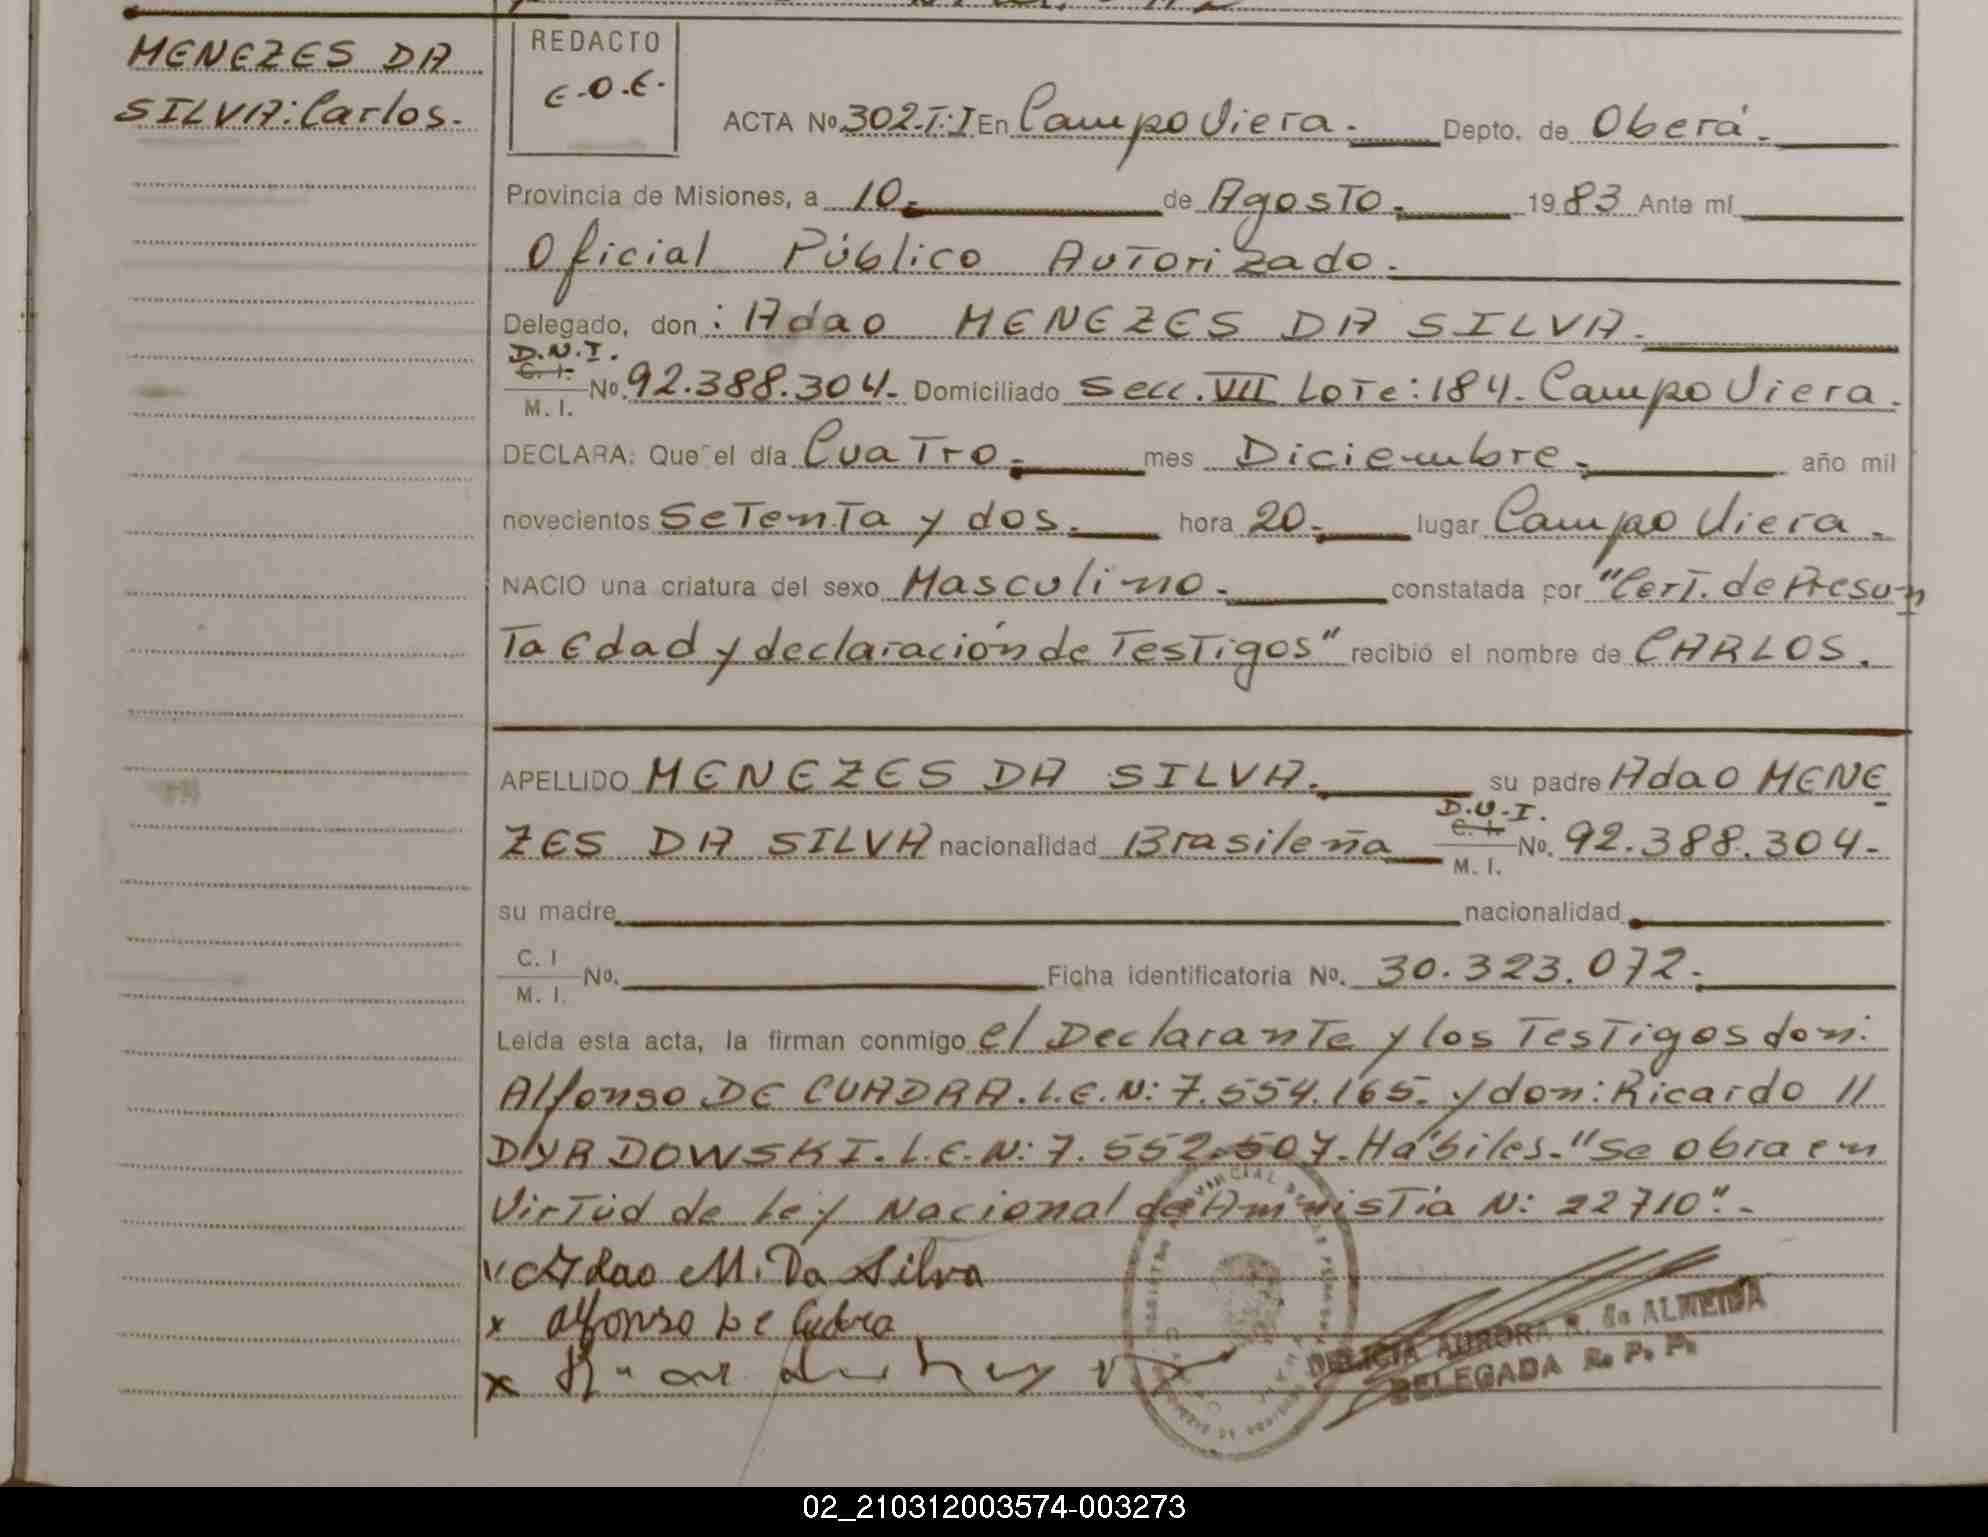 MENEZES DA
SILVA: Carlos.
REDACTO
E.O.E.
ACTA Nº 302.T.I En Campo Viera. Depto. de Oberá.
Provincia de Misiones, a 10. de Agosto. 1983 Ante mí
Oficial Público Autorizado.
Delegado, don: Adao MENEZES DA SILVA.
D.N.I.
C. I.
M. I. Nº. 92.388.304. Domiciliado Secc. VII Lote: 184. Campo Viera.
DECLARA: Que el día Cuatro. mes Diciembre. año mil
novecientos Setenta y dos. hora 20. lugar Campo Viera.
NACIO una criatura del sexo Masculino. constatada por "Cert. de Presun
ta Edad y declaración de Testigos" recibió el nombre de CARLOS.
APELLIDO MENEZES DA SILVA. su padre Adao MENE
D.N.I.
ZES DA SILVA nacionalidad Brasileña C. I. M. I. Nº. 92.388.304.
su madre nacionalidad
C. I
M. I. Nº. Ficha identificatoria Nº. 30.323.072.
Leída esta acta, la firman conmigo el Declarante y los Testigos don:
Alfonso DE CUADRA. L.E.N: 7.554.165. y don: Ricardo //
DYRDOWSKI. L.E.N: 7.552.507. Hábiles. "Se obra en
Virtud de Ley Nacional de Amnistía N: 22710".
Adao M. Da Silva
x Alfonso De Cudra
x
DELICIA AURORA R. de ALMEIDA
DELEGADA R. P. P.
02_210312003574-003273